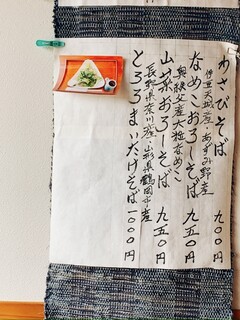 わさびそば 九〇〇円
伊豆天城産・あずみ野産
なめこおろしそば 九五〇円
奥秩父産大粒なめこ
山菜おろしそば 九五〇円
長野県奈川産・山形県鶴岡市産
とろろまいたけそば 一〇〇〇円